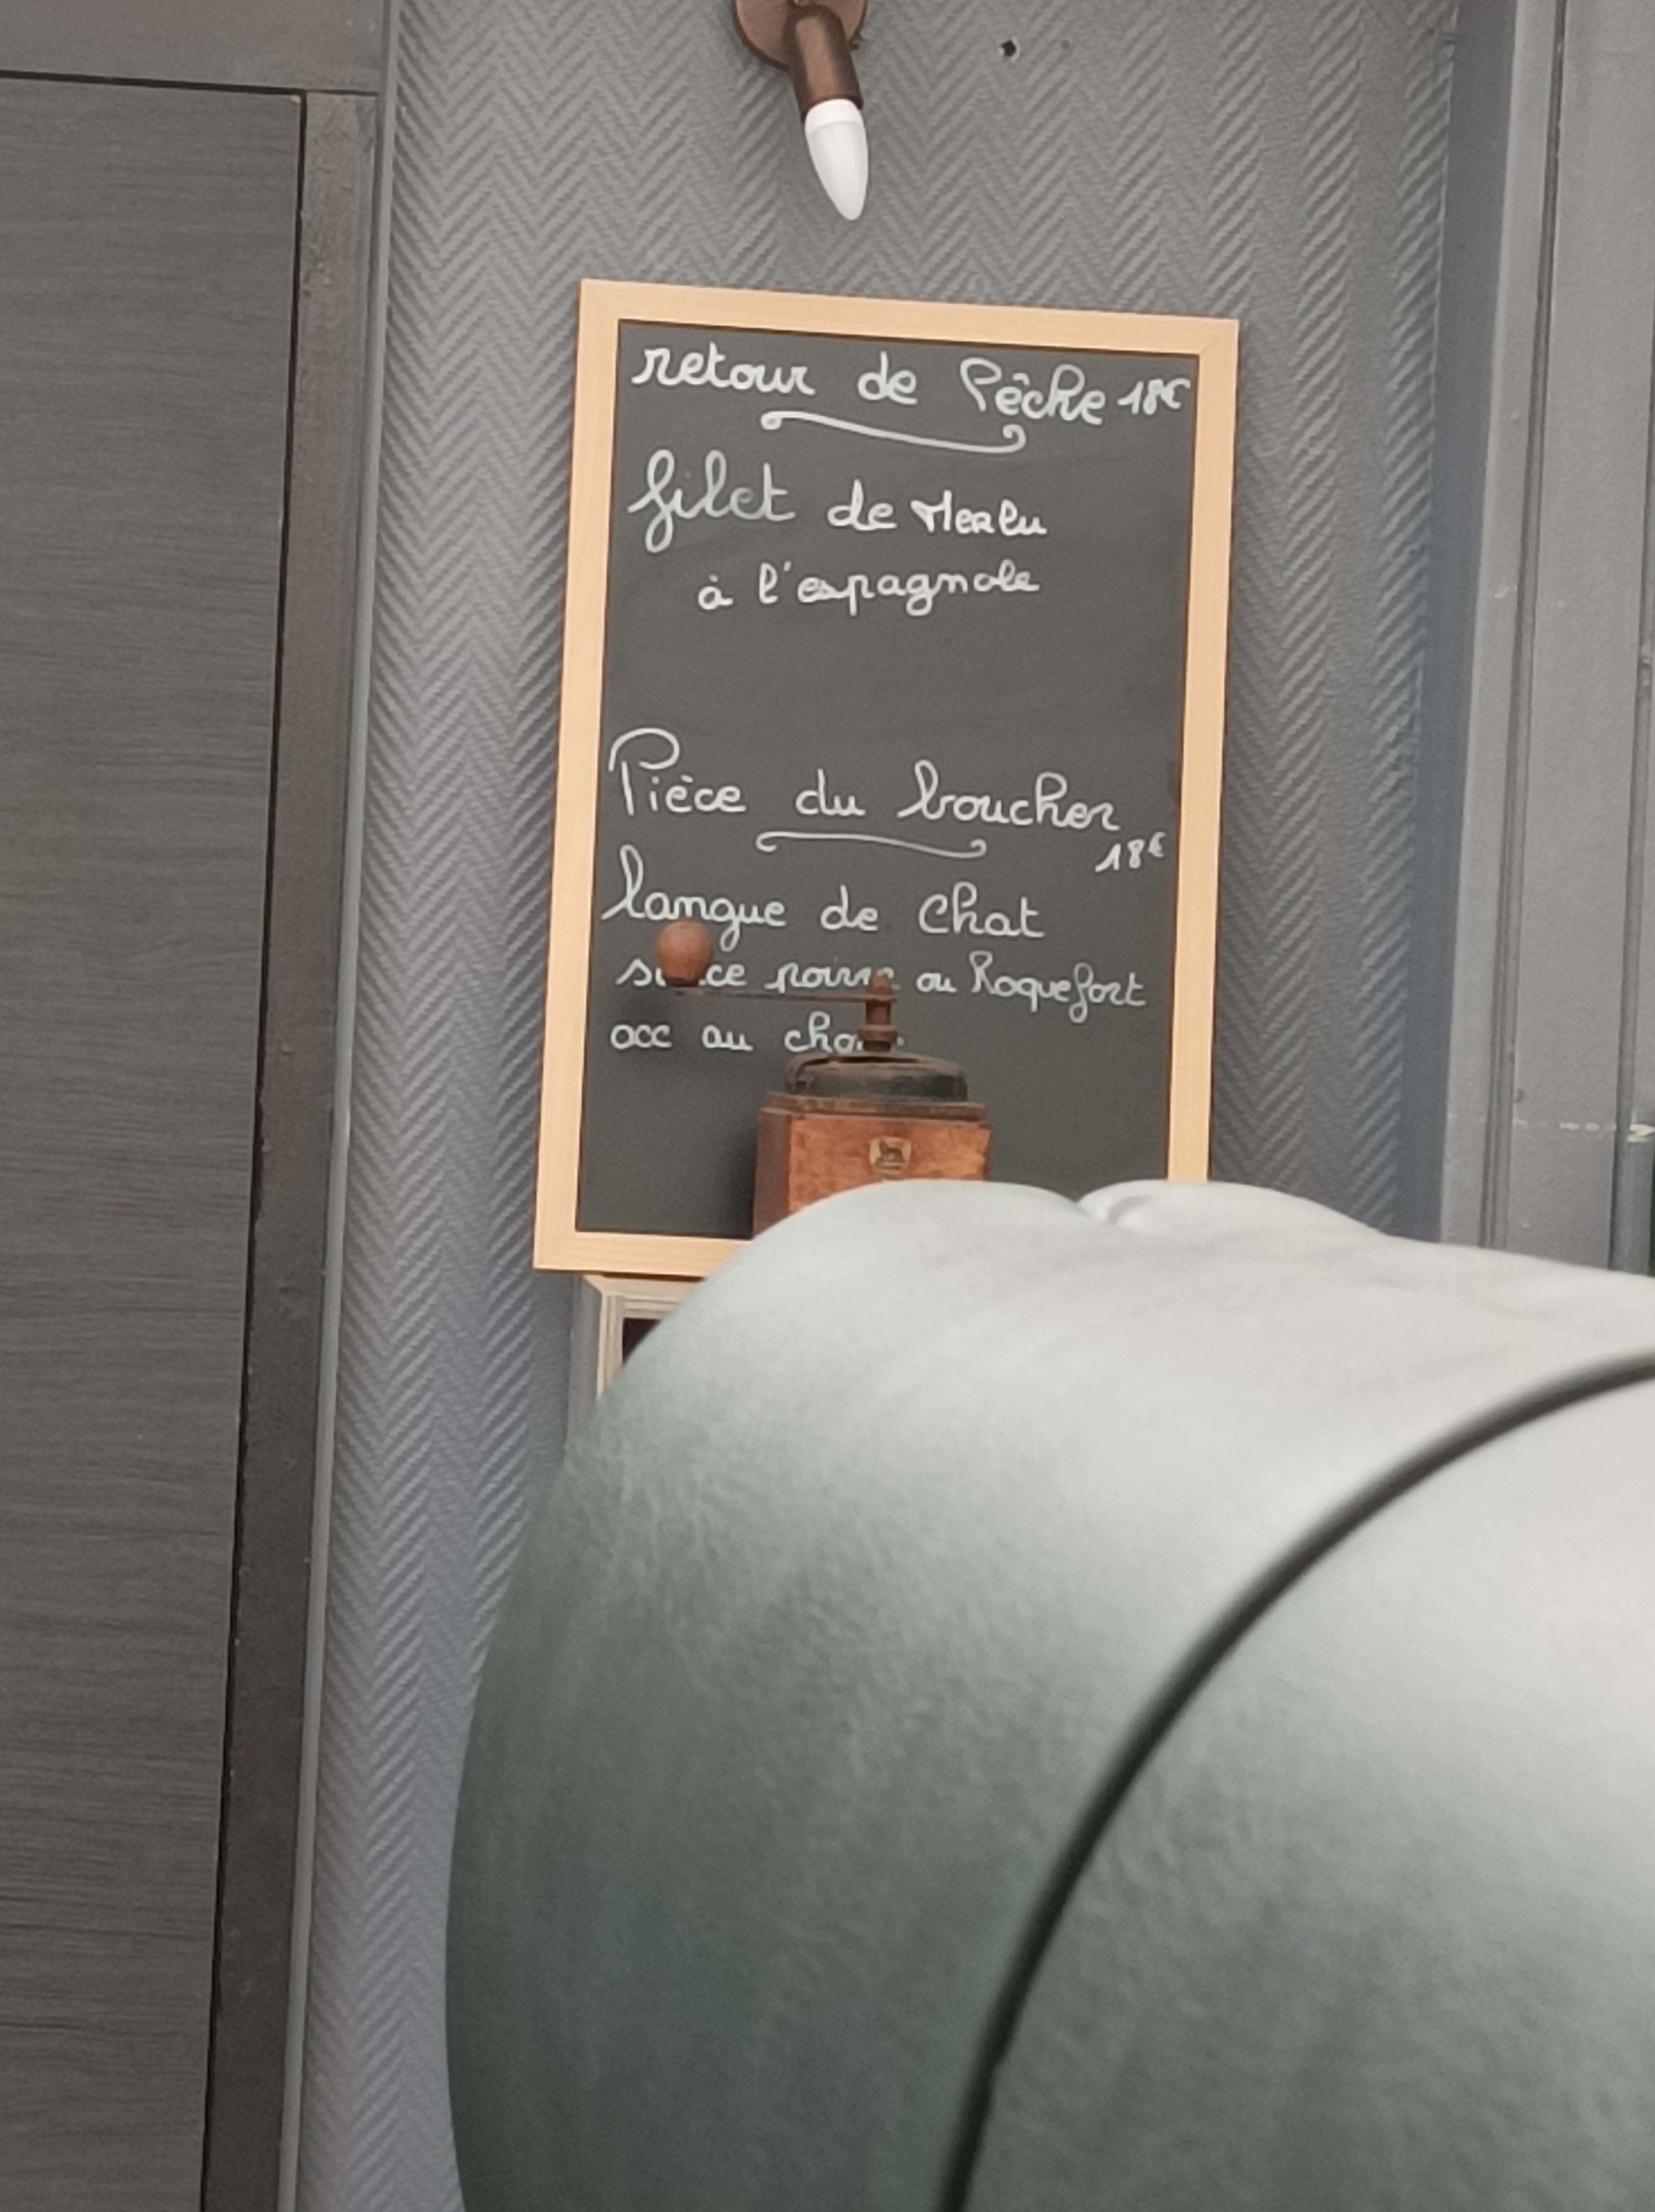 retour de Pêche 18€
filet de Merlu
à l'espagnole
Pièce du boucher
18€
langue de chat
ou Roquefort
acc au